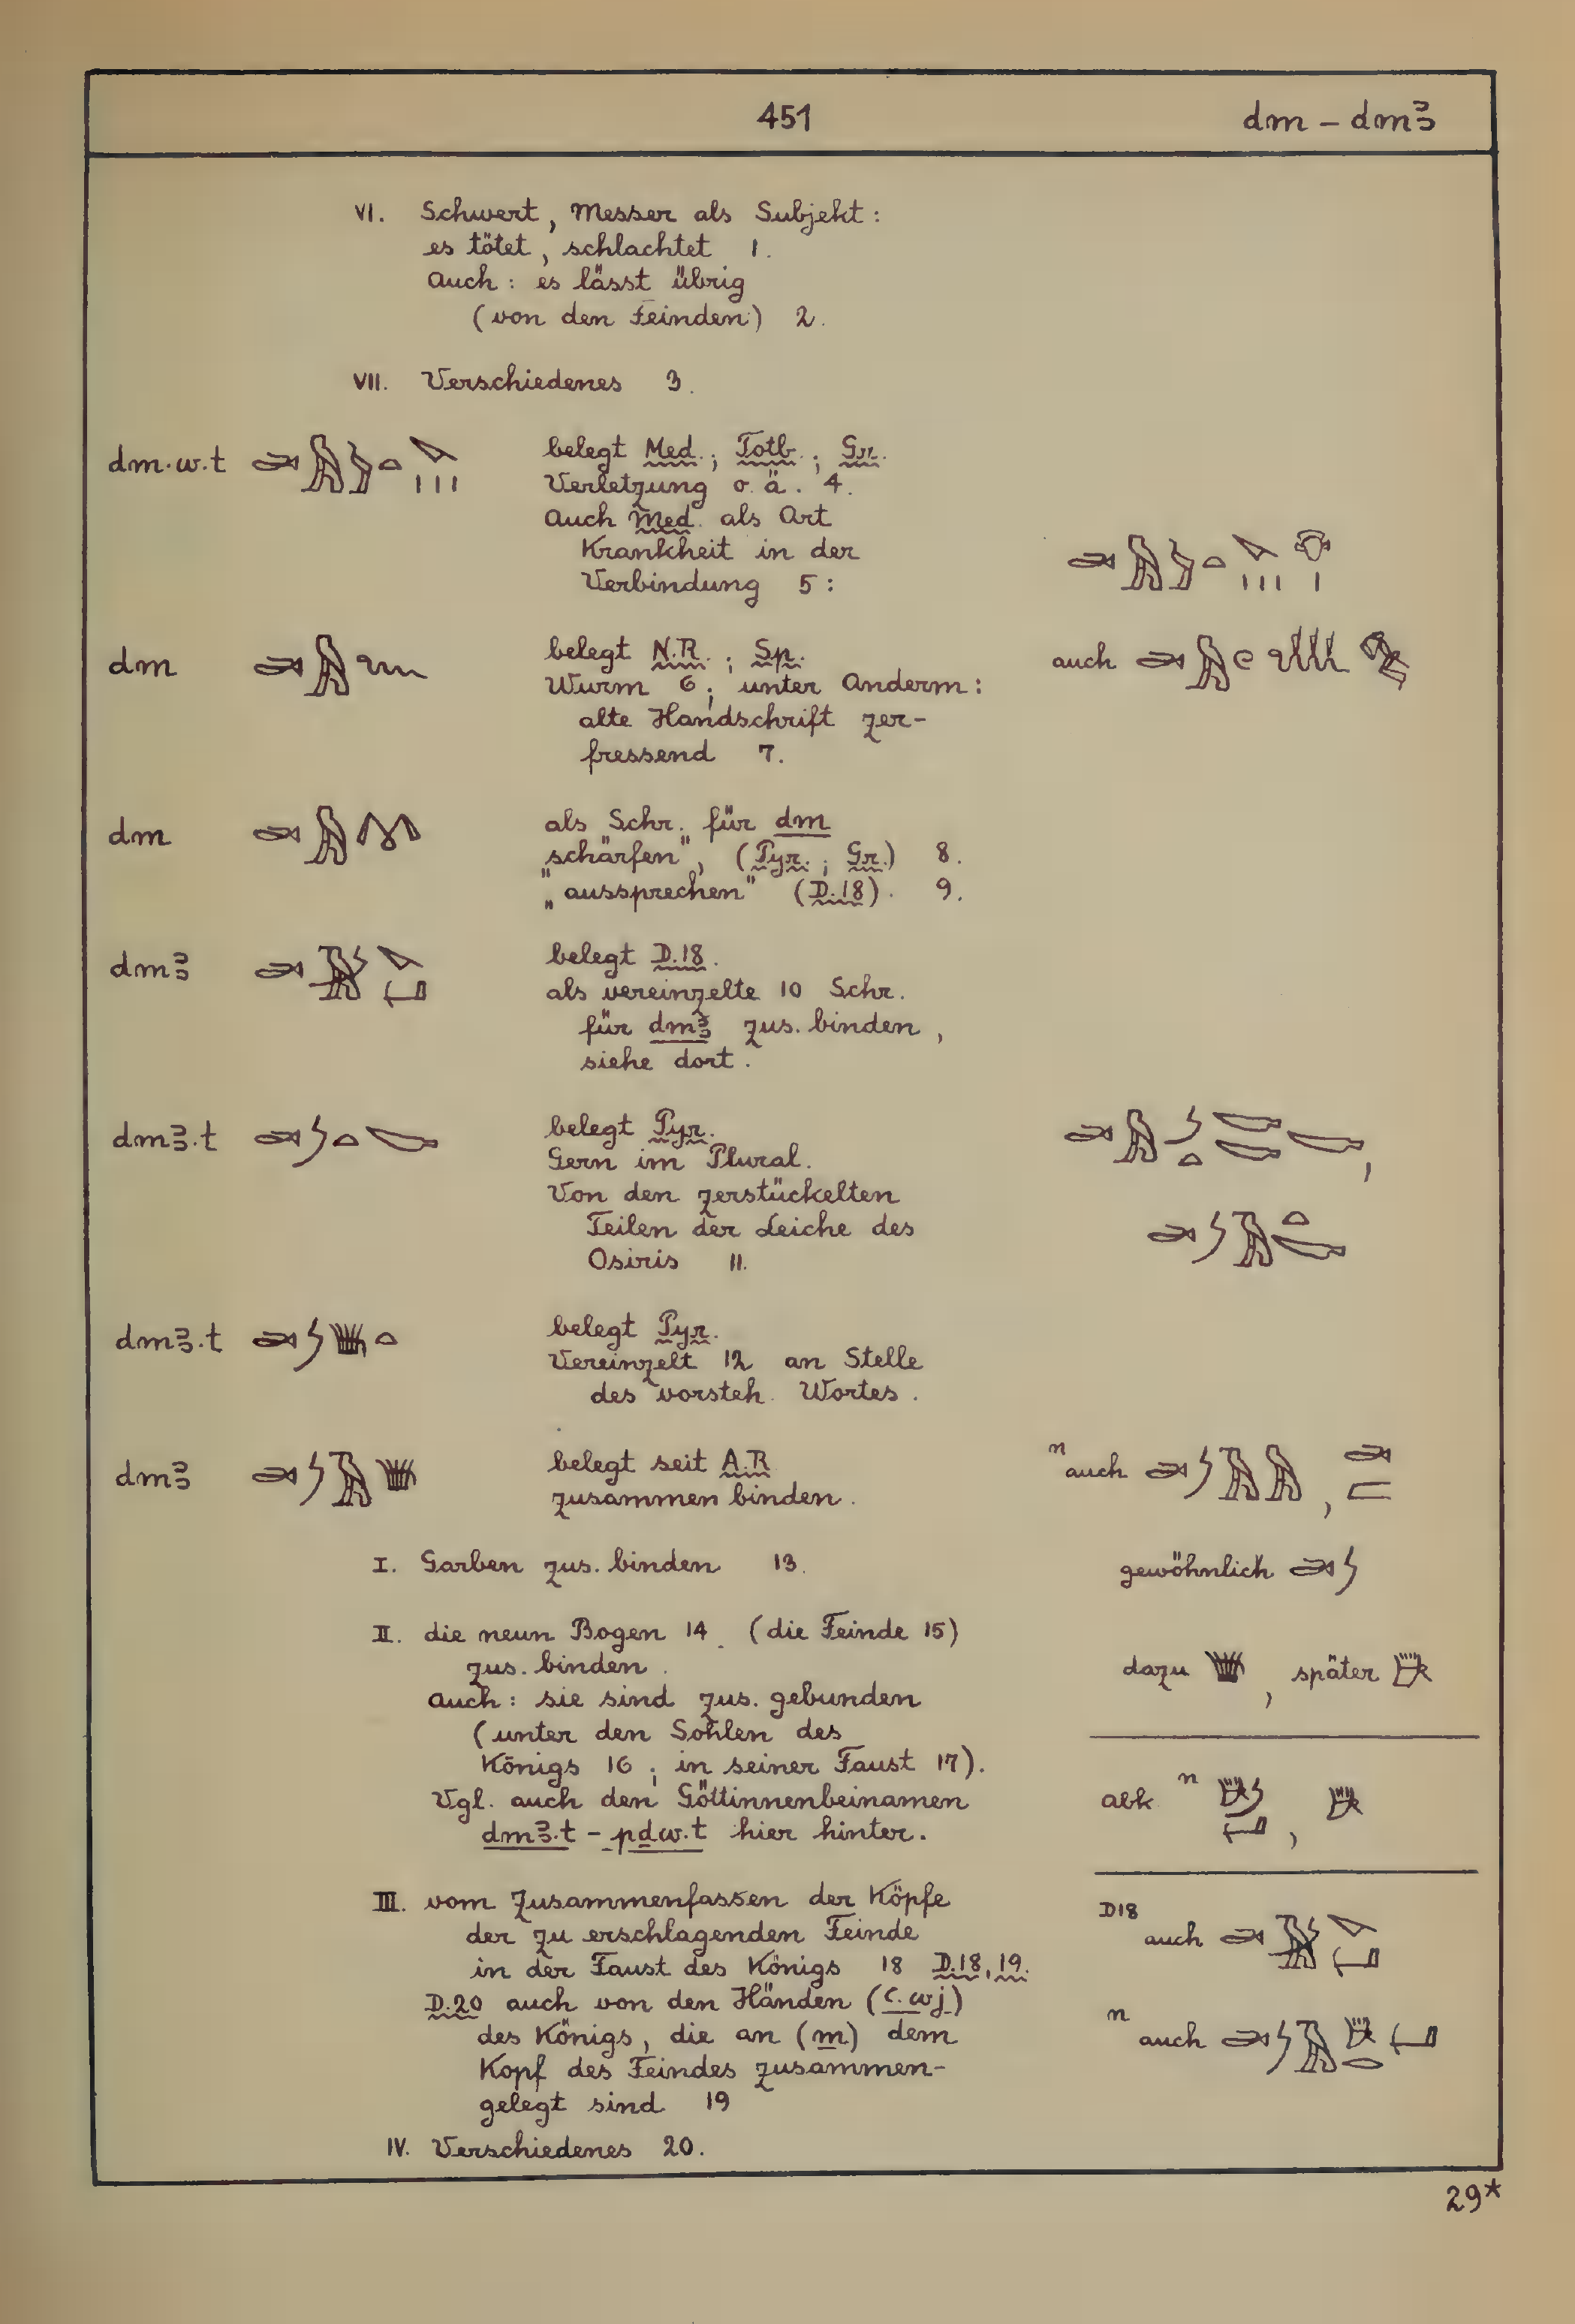 451
dm – dmꜣ
VI. Schwert, Messer als Subjekt:
es tötet, schlachtet 1.
Auch: es lässt übrig
(von den Feinden) 2.
VII. Verschiedenes 3.
dm.w.t
belegt Med.; Totb.; Gr.
Verletzung o.ä. 4.
Auch Med. als Art
Krankheit in der
Verbindung 5:
dm
belegt N.R.; Sp.
auch
Wurm 6; unter Anderm:
alte Handschrift zer-
fressend 7.
dm
als Schr. für dm
„schärfen", (Pyr.; Gr.) 8.
„aussprechen" (D.18). 9.
dmꜣ
belegt D.18.
als vereinzelte 10 Schr.
für dmꜣ zus. binden,
siehe dort.
dmꜣ.t
belegt Pyr.
Gern im Plural.
Von den zerstückelten
Teilen der Leiche des
Osiris 11.
dmꜣ.t
belegt Pyr.
Vereinzelt 12 an Stelle
des vorsteh. Wortes.
dmꜣ
belegt seit A.R
n auch
zusammen binden.
I. Garben zus. binden 13.
gewöhnlich
II. die neun Bogen 14. (die Feinde 15)
zus. binden.
dazu , später
Auch: sie sind zus. gebunden
(unter den Sohlen des
Königs 16; in seiner Faust 17).
Vgl. auch den Göttinnenbeinamen
abk n
dmꜣ.t – pḏw.t hier hinter.
III. vom Zusammenfassen der Köpfe
der zu erschlagenden Feinde
D18 auch
in der Faust des Königs 18 D.18,19.
D.20 auch von den Händen (ꜥ.wj)
des Königs, die an (m) dem
n auch
Kopf des Feindes zusammen-
gelegt sind 19
IV. Verschiedenes 20.
29*